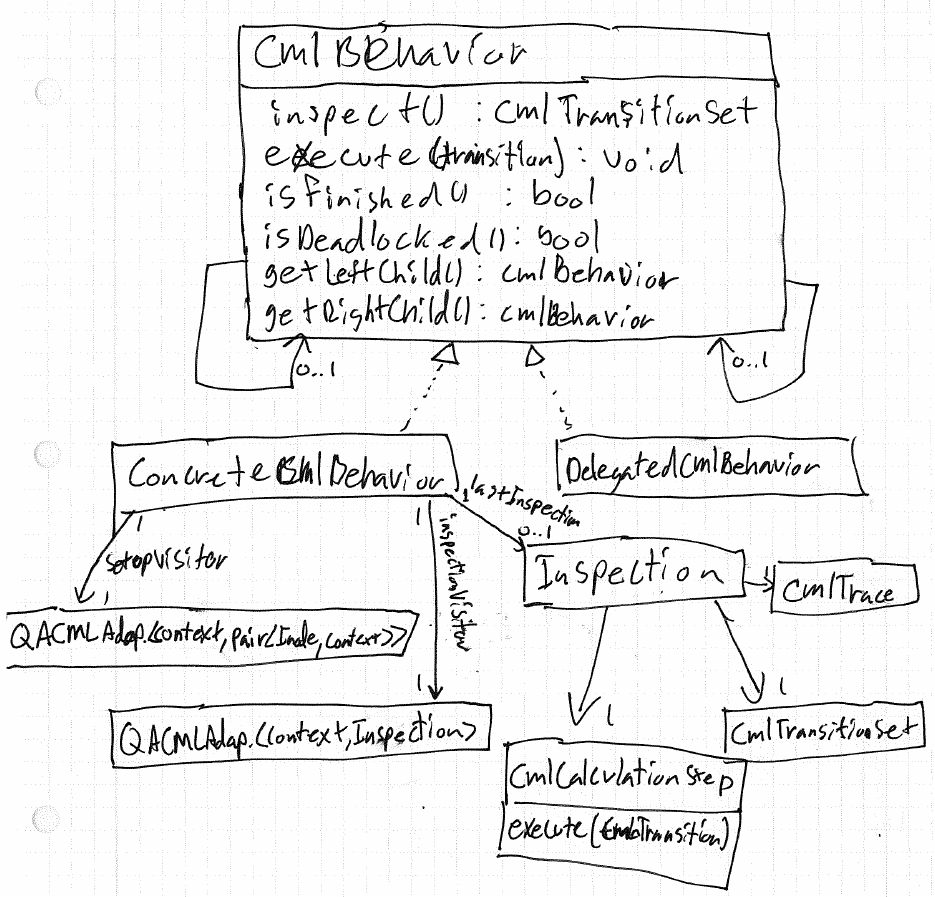 CmlBehavior
inspect() : CmlTransitionSet
execute(transition) : void
isFinished() : bool
isDeadlocked() : bool
getLeftChild() : CmlBehavior
getRightChild() : CmlBehavior
0..1
0..1
ConcreteCmlBehavior
DelegatedCmlBehavior
1
lastInspection
1
1
0..1
setupVisitor
inspectionVisitor
Inspection
1
CmlTrace
1
QACMLAdap.<Context, Pair<INode, Context>>
1
1
1
QACMLAdap.<Context, Inspection>
CmlTransitionSet
CmlCalculationStep
execute(CmlTransition)